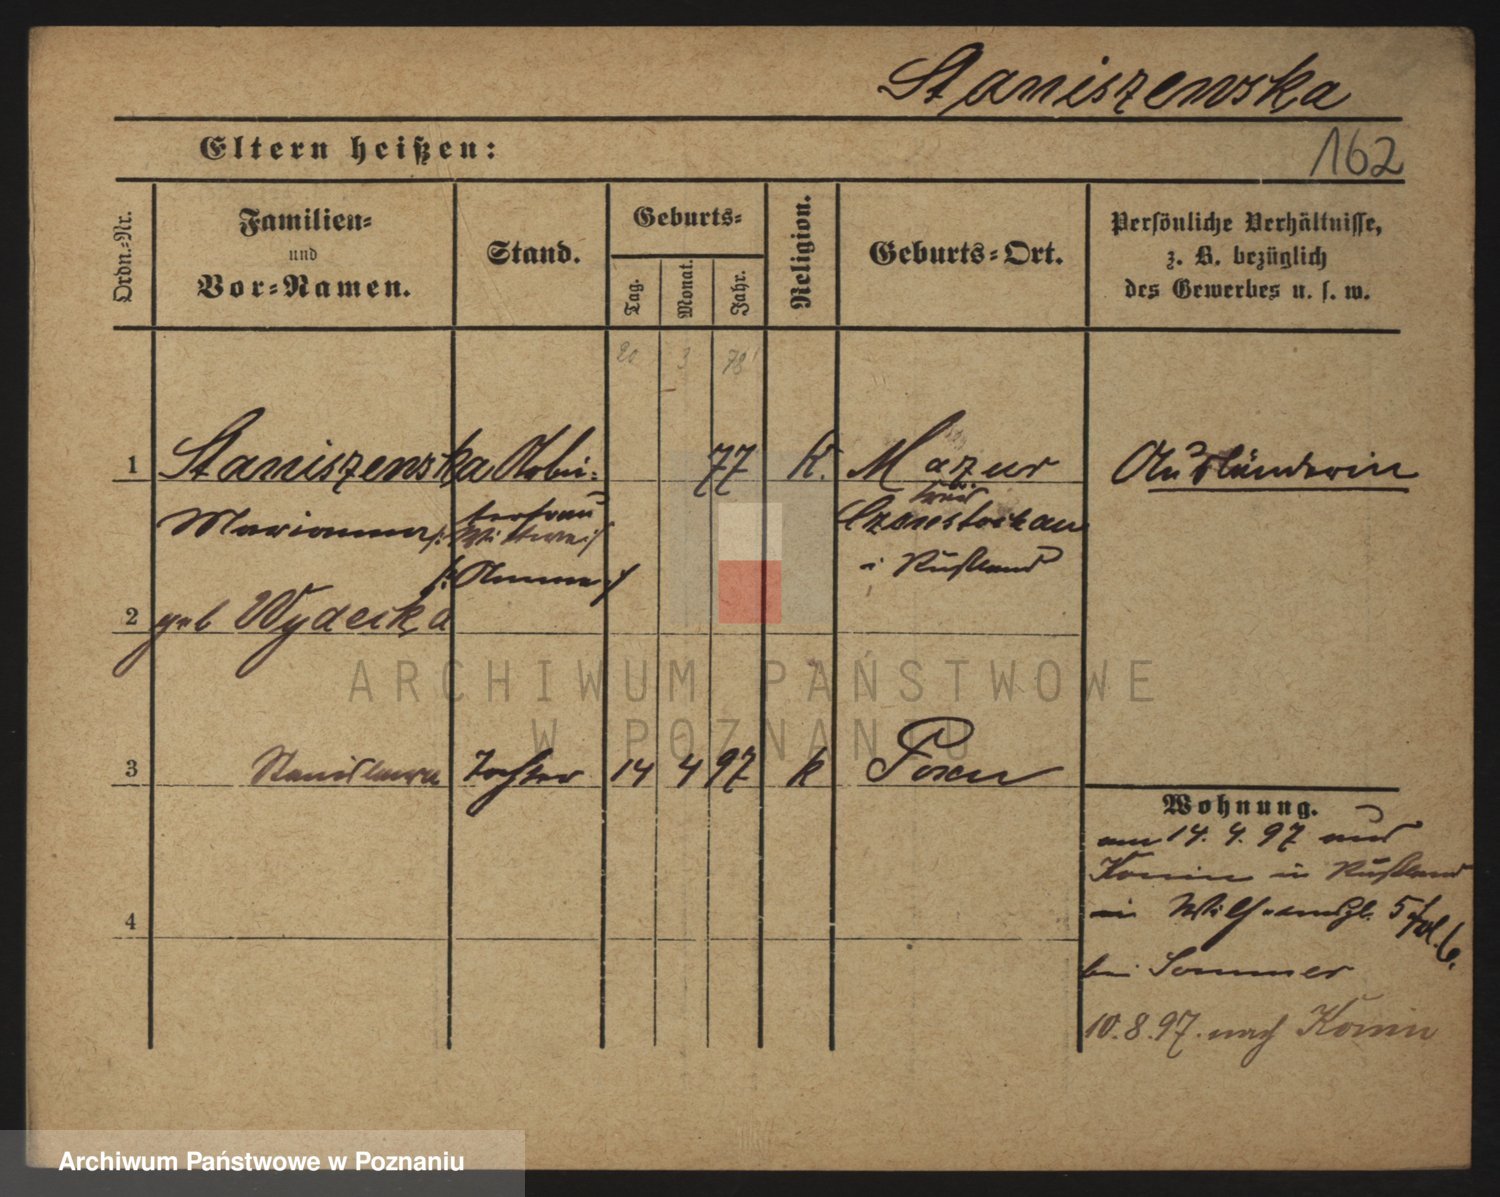 Staniszewska
Eltern heißen:
162
Ordn.-Nr.
Familien-
und
Vor-Namen.
Stand.
Geburts-
Tag.
Monat.
Jahr.
Religion.
Geburts-Ort.
Persönliche Verhältnisse,
z. B. bezüglich
des Gewerbes u. s. w.
20 3 78
1 Staniszewska Arbei- 77 k. Mazur Ausländerin
Marianna terfrau
Wittwe
Kreis
Czenstochau
i Rußland
2 geb Wydecka
3 Stanislawa Tochter 14 4 97 k Posen
Wohnung.
am 14. 4. 97 aus
Konin in Rußland
in 5
bei Sommer
4
10. 8. 97. nach Konin
ARCHIWUM PAŃSTWOWE
W POZNANIU
Archiwum Państwowe w Poznaniu